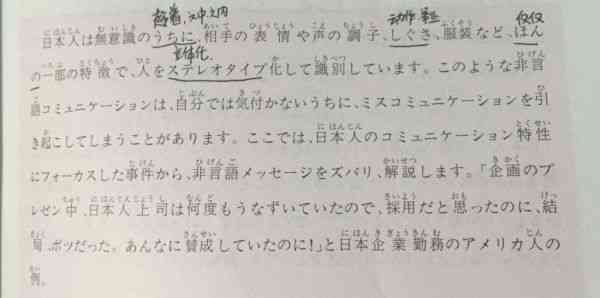 动作 举止 仅仅
日本人は無意識のうちに、相手の表情や声の調子、しぐさ、服装など、ほん
立体化
の一部の特徴で、人をステレオタイプ化して識別しています。このような非言
語コミュニケーションは、自分では気付かないうちに、ミスコミュニケーションを引
き起こしてしまうことがあります。ここでは、日本人のコミュニケーション特性
にフォーカスした事件から、非言語メッセージをズバリ、解説します。「企画のプ
レゼン中、日本人上司は何度もうなずいていたので、採用だと思ったのに、結
局、ボツだった。あんなに賛成していたのに!」と日本企業勤務のアメリカ人の
例。